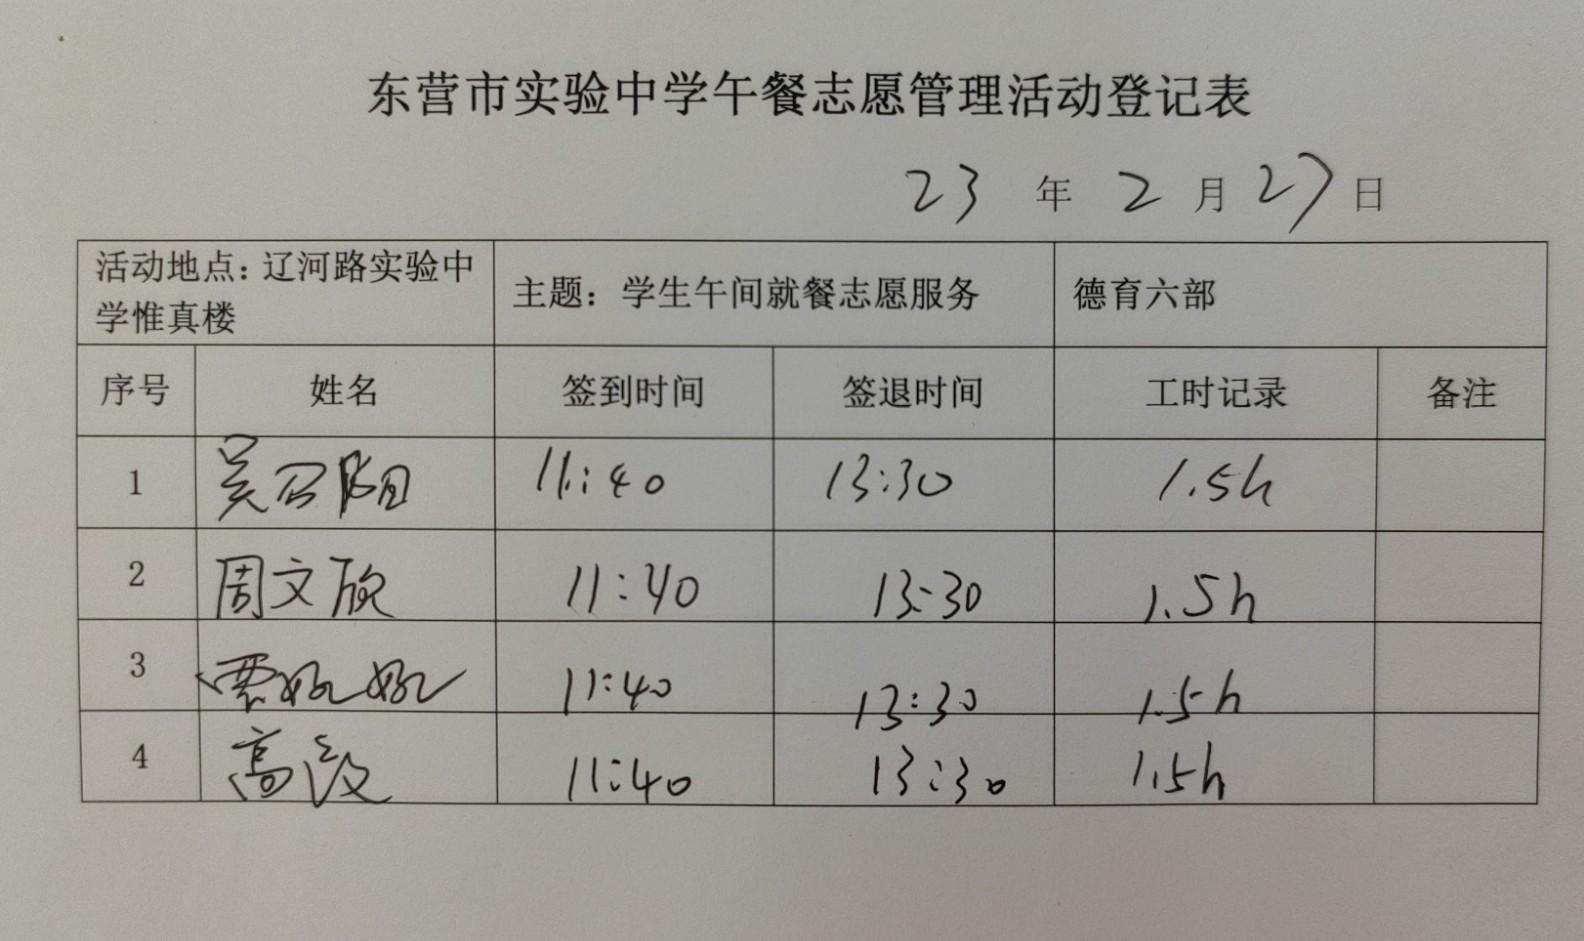 东营市实验中学午餐志愿管理活动登记表
23 年 2 月 27 日
活动地点：辽河路实验中
学惟真楼
主题：学生午间就餐志愿服务
德育六部
序号 姓名 签到时间 签退时间 工时记录 备注
1 吴召阳 11:40 13:30 1.5h
2 周文欣 11:40 13:30 1.5h
3 11:40 13:30 1.5h
4 高 11:40 13:30 1.5h